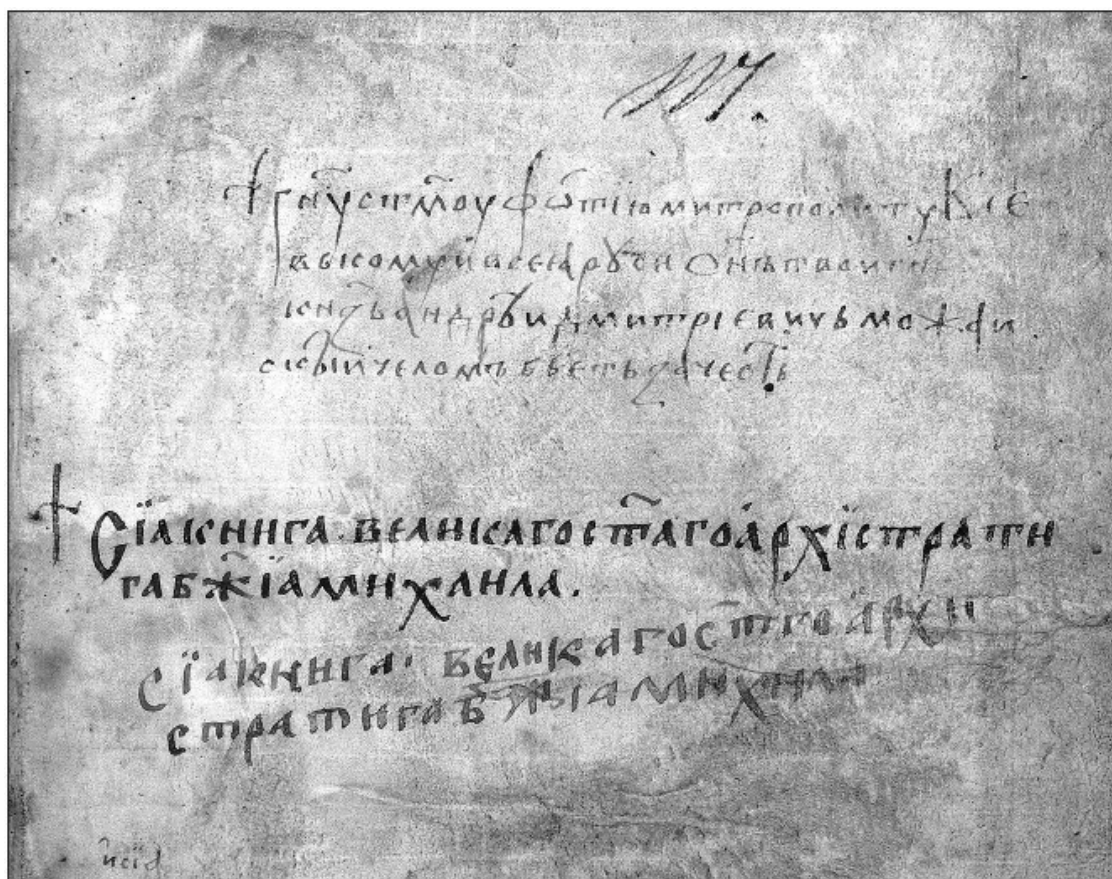 гн҃у ст҃моу фѡтїю митрополиту Кıє
въскому и всеꙗ руси
кнѧзь андрѣи дмитрїевичь можаи
скыи челомъ бьеть
Сїа книга великаго ст҃аго архїстрати
га бж҃їа михаила.
Сїа книга великаго ст҃го архи
стратига бж҃їа михаила